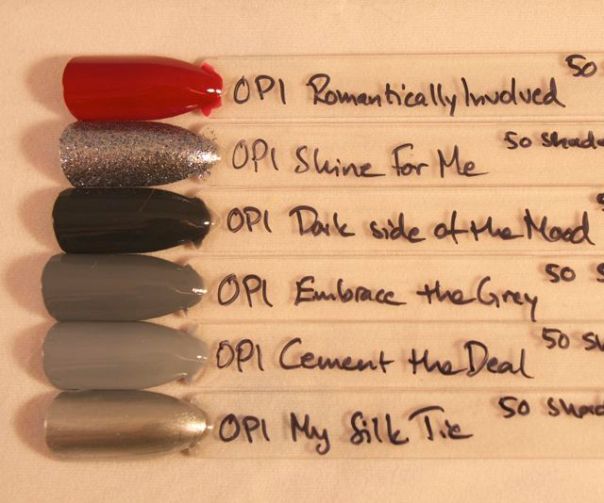 OPI Romantically Involved 50
OPI Shine For Me 50 Shad
OPI Dark side of the Mood
OPI Embrace the Grey 50 S
OPI Cement the Deal 50 Sh
OPI My Silk Tie 50 Shad